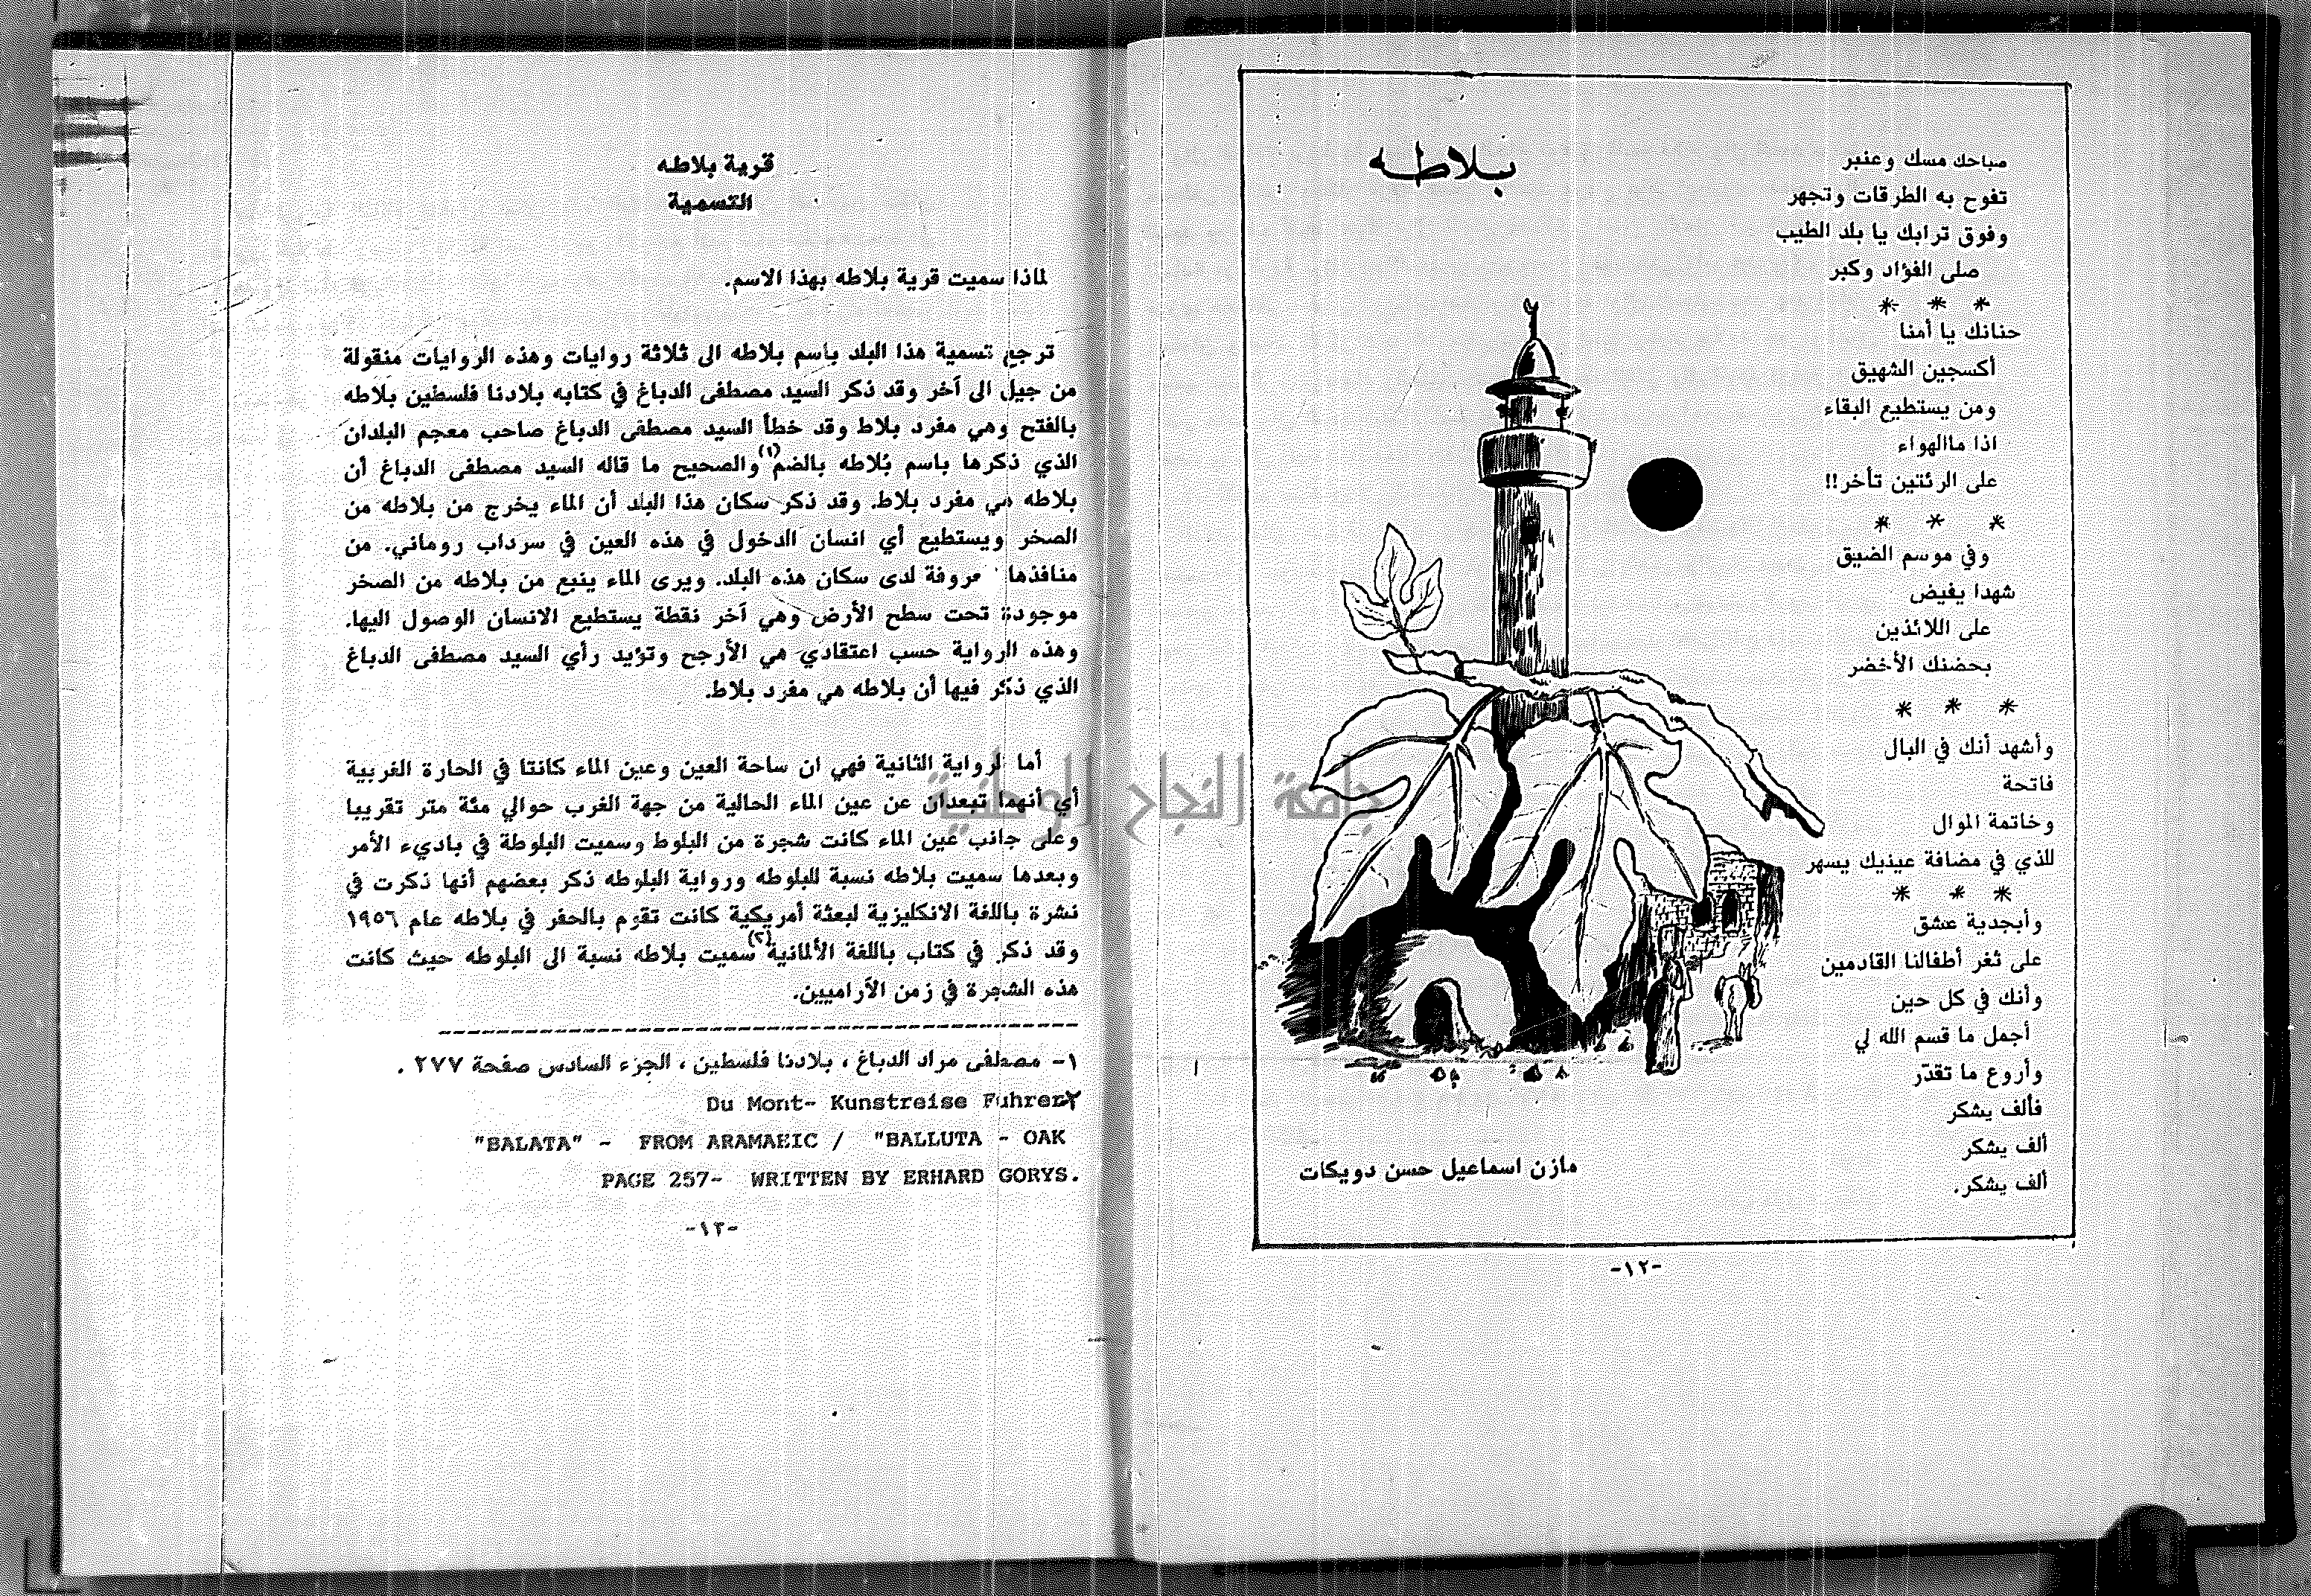 بلاطه
صباحك مسك وعنبر
تفوح به الطرقات وتجهر
وفوق ترابك يا بلد الطيب
صلى الفؤاد وكبر
* * *
حنانك يا أمنا
أكسجين الشهيق
ومن يستطيع البقاء
اذا ماالهواء
على الرئتين تأخر!!
* * *
وفي موسم الضيق
شهدا يفيض
على اللائذين
بحضنك الأخضر
* * *
وأشهد أنك في البال
فاتحة
وخاتمة الموال
للذي في مضافة عينيك يسهر
* * *
وأبجدية عشق
على ثغر أطفالنا القادمين
وأنك في كل حين
أجمل ما قسم الله لي
وأروع ما تقدّر
فألف يشكر
ألف يشكر
ألف يشكر.
مازن اسماعيل حسن دويكات
-١٢-
قرية بلاطه
التسمية
لماذا سميت قرية بلاطه بهذا الاسم.
ترجع تسمية هذا البلد باسم بلاطه الى ثلاثة روايات وهذه الروايات منقولة
من جيل الى آخر وقد ذكر السيد مصطفى الدباغ في كتابه بلادنا فلسطين بلاطه
بالفتح وهي مفرد بلاط وقد خطأ السيد مصطفى الدباغ صاحب معجم البلدان
الذي ذكرها باسم بُلاطه بالضم(١) والصحيح ما قاله السيد مصطفى الدباغ أن
بلاطه هي مفرد بلاط. وقد ذكر سكان هذا البلد أن الماء يخرج من بلاطه من
الصخر ويستطيع أي انسان الدخول في هذه العين في سرداب روماني. من
منافذها معروفة لدى سكان هذه البلد. ويرى الماء ينبع من بلاطه من الصخر
موجودة تحت سطح الأرض وهي آخر نقطة يستطيع الانسان الوصول اليها.
وهذه الرواية حسب اعتقادي هي الأرجح وتؤيد رأي السيد مصطفى الدباغ
الذي ذكر فيها أن بلاطه هي مفرد بلاط.
أما الرواية الثانية فهي ان ساحة العين وعين الماء كانتا في الحارة الغربية
أي أنهما تبعدان عن عين الماء الحالية من جهة الغرب حوالي مئة متر تقريبا
وعلى جانب عين الماء كانت شجرة من البلوط وسميت البلوطة في باديء الأمر
وبعدها سميت بلاطه نسبة للبلوطه ورواية البلوطه ذكر بعضهم أنها ذكرت في
نشرة باللغة الانكليزية لبعثة أمريكية كانت تقوم بالحفر في بلاطه عام ١٩٥٦
وقد ذكر في كتاب باللغة الألمانية(٢) سميت بلاطه نسبة الى البلوطه حيث كانت
هذه الشجرة في زمن الآراميين.
١- مصطفى مراد الدباغ ، بلادنا فلسطين ، الجزء السادس صفحة ٢٧٧ .
Du Mont- Kunstreise Fuhrer-٢
"BALATA" - FROM ARAMAEIC / "BALLUTA - OAK
PAGE 257- WRITTEN BY ERHARD GORYS.
-١٣-
جامعة النجاح الوطنية